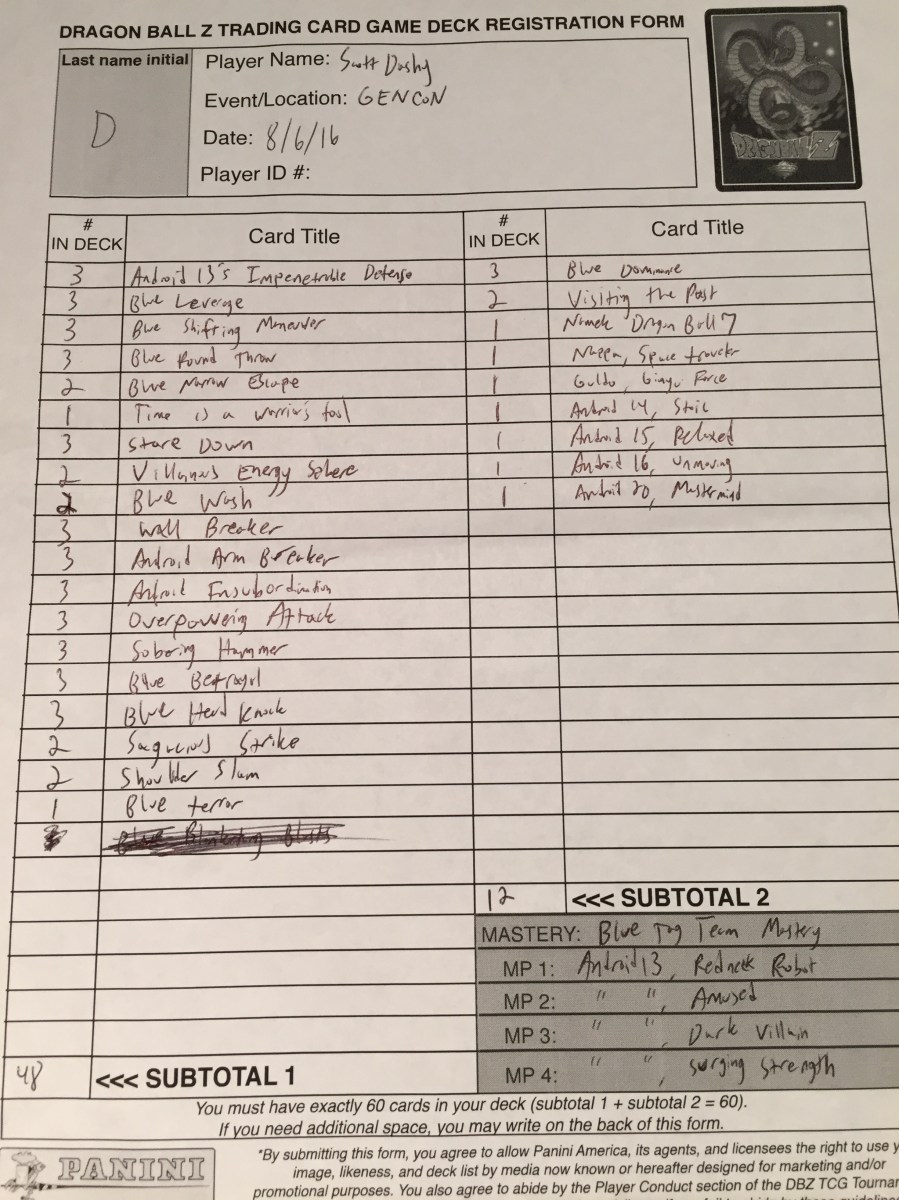 DRAGON BALL Z TRADING CARD GAME DECK REGISTRATION FORM
Last name initial
D
Player Name: Scott Dashy
Event/Location: GENCON
Date: 8/6/16
Player ID #:
DRAGONBALL Z
# IN DECK Card Title
3 Android 13's Impenetrable Defense
3 Blue Leverage
3 Blue Shifting Maneuver
3 Blue Round Throw
2 Blue Narrow Escape
1 Time is a warrior's tool
3 Stare Down
2 Villainous Energy Sphere
2 Blue Wash
3 Wall Breaker
3 Android Arm Breaker
3 Android Ensubordination
3 Overpowering Attack
3 Sobering Hammer
3 Blue Betrayal
3 Blue Head Knock
2 Sagacious Strike
2 Shoulder Slam
1 Blue terror
48 <<< SUBTOTAL 1
# IN DECK Card Title
3 Blue Dominance
2 Visiting the Past
1 Namek Dragon Ball 7
1 Nappa, Space traveler
1 Guldo, Ginyu Force
1 Android 14, Stoic
1 Android 15, Relaxed
1 Android 16, Unmoving
1 Android 20, Mastermind
12 <<< SUBTOTAL 2
MASTERY: Blue Tag Team Mastery
MP 1: Android 13, Redneck Robot
MP 2: " ", Amused
MP 3: " ", Dark Villain
MP 4: " ", Surging Strength
You must have exactly 60 cards in your deck (subtotal 1 + subtotal 2 = 60).
If you need additional space, you may write on the back of this form.
PANINI
"By submitting this form, you agree to allow Panini America, its agents, and licensees the right to use y
image, likeness, and deck list by media now known or hereafter designed for marketing and/or
promotional purposes. You also agree to abide by the Player Conduct section of the DBZ TCG Tourna